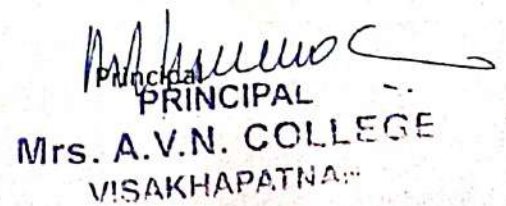 Principal
PRINCIPAL
Mrs. A.V.N. COLLEGE
VISAKHAPATNAM